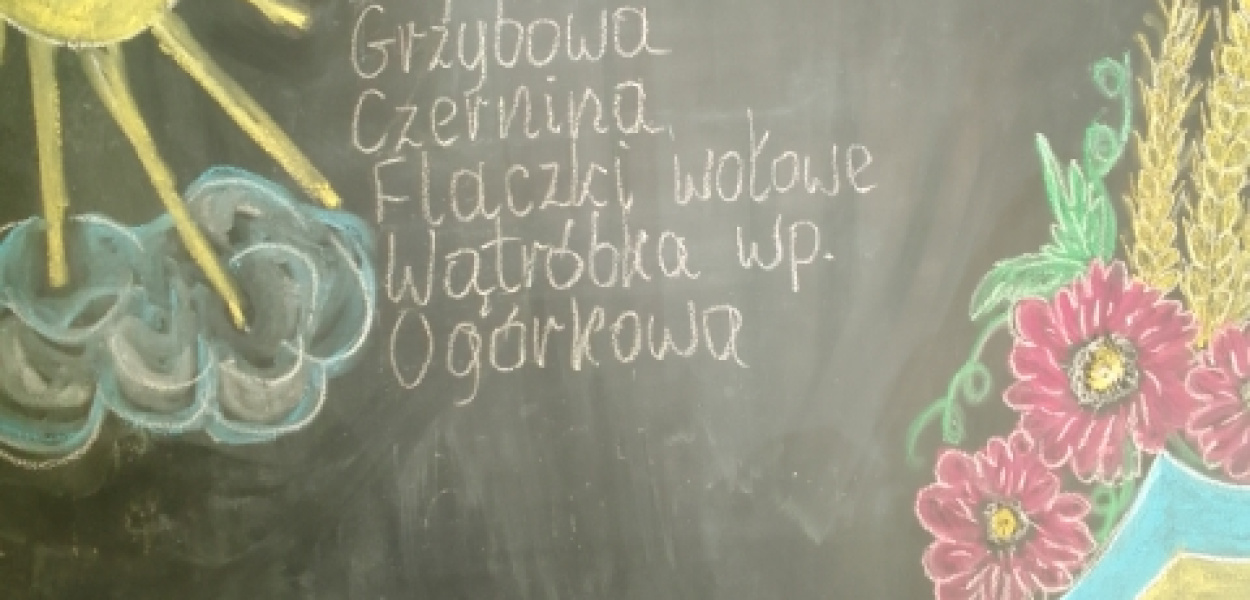 Grzybowa
Czernina
Flaczki wołowe
Wątróbka wp.
Ogórkowa